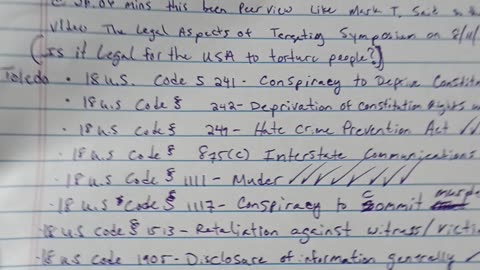 mins this been Peer view Like Mark T. Said in the
Video The Legal Aspects of Targeting Symposium on 8/11/
(Is it Legal for the USA to torture people?)
Toledo • 18 U.S. Code S 241 - Conspiracy to Deprive Constitut
• 18 U.S Code § 242 - Deprivation of Constitution Rights
• 18 U.S Code § 249 - Hate Crime Prevention Act ✓✓
• 18 U.S Code § 875(c) Interstate Communications
• 18 U.S Code § 1111 - Muder ✓✓✓✓✓✓✓
• 18 U.S Code § 1117 - Conspiracy to Commit
• 18 U.S Code § 1513 - Retaliation against witness/victi
• 18 U.S Code 1905 - Disclosure of information generally ✓